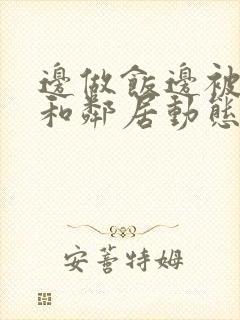 邊做飯邊被
和鄰居動態
安菩特姆